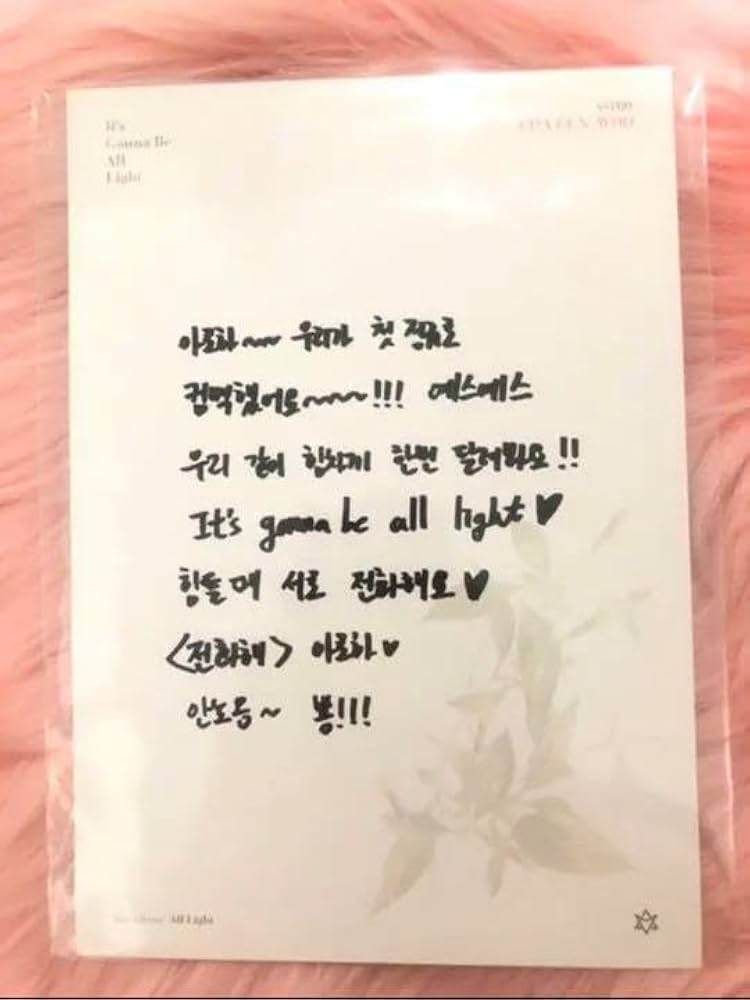 It's
Gonna Be
All
Light
ASTRO
CHA EUN-WOO
아로하~~ 우리가 첫 정규로
컴백했어요~~~!!! 예스예스
우리 같이 힘차게 한번 달려봐요!!
It's gonna be all light♥
힘들 때 서로 전화해요♥
<전화해> 아로하♥
안노옹~ 뿅!!!
All Light